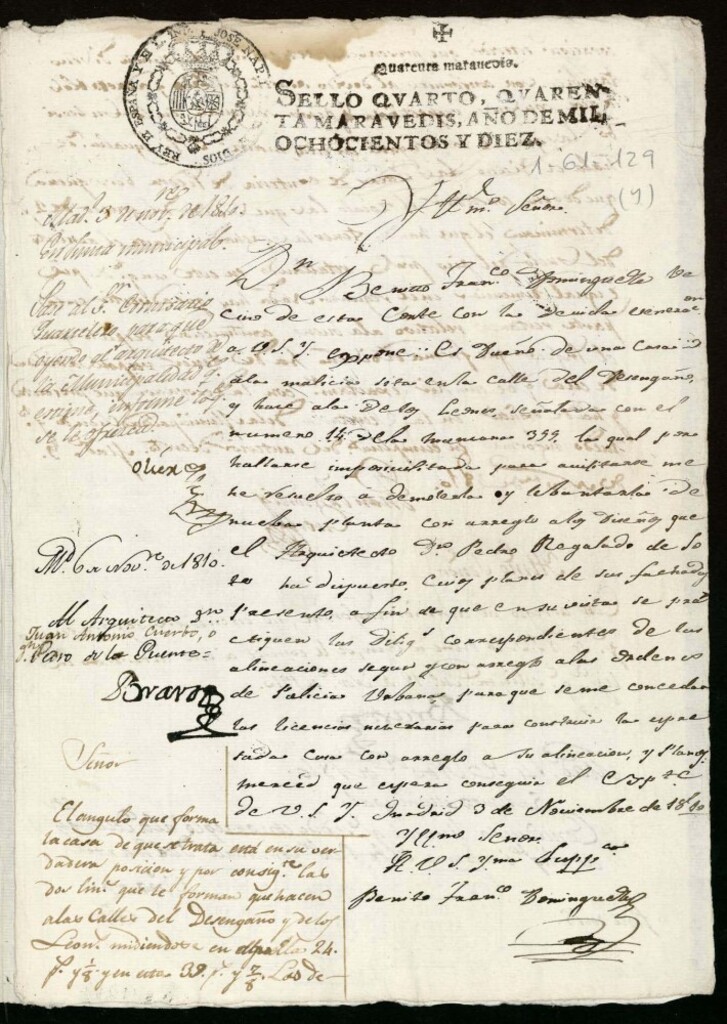 REY D. ESPAÑA Y D. L. INDIAS JOSE NAP. I. P. L. G. D. DIOS
Quarenta maravedis.
SELLO QVARTO, QVAREN-
TA MARAVEDIS, AÑO DE MIL
OCHOCIENTOS Y DIEZ.
1-61-129
(9)
Mad. 3 de nov.re de 1810.
En Junta municipal.
Pase al Sr. Comisario
Quartelero, para que
oyendo al arquitecto de
la Municipalidad q.
estime, informe lo q.
se le ofrezca
Md. 6 de Nov.re de 1810.
Al Arquitecto Dn
Juan Antonio Cuerbo, o
Dn Pedro de la Puente=
Bravo
Señor
El angulo que forma
la casa de que se trata está en su ver
dadera posicion y por consig.te las
dos lin.s que le forman que hacen
a las Calles del Desengaño y de los
Leon.s midiendose en aquella 24.
p. y 1/8 y en esta 39. p. y 7/8 Las de-
Yll.mo Señor.
Dn Benito Franco Dominguez Ve
cino de esta Corte con la devida veneracion
a V.S.Y. expone: Es Dueño de una Casa
a la malicia sita en la calle del Desengaño,
y hace a la de los Leones, señalada con el
numero 14 de la manzana 355, la qual por
hallarse imposivilitada para avitarse me
he resuelto a demolerla y lebantarla de
nueba planta con arreglo a los Diseños que
el Arquitecto Dn Pedro Regalado de So
to ha dispuesto, cuios planes de sus fachadas
presento, a fin de que en su vista se pra
ctiquen las dilig.s correspondientes de las
alineaciones segun y con arreglo a las ordenes
de Policia Urbana, para que se me concedan
las licencias necesarias para construir la espre
sada Casa con arreglo a su alineacion, y Planos
merced que espera conseguir el Exp.te
de V.S.Y. Madrid 3 de Noviembre de 1810
Yllmo Señor.
A. V.S. Yma Supp.co
Benito Franco Dominguez